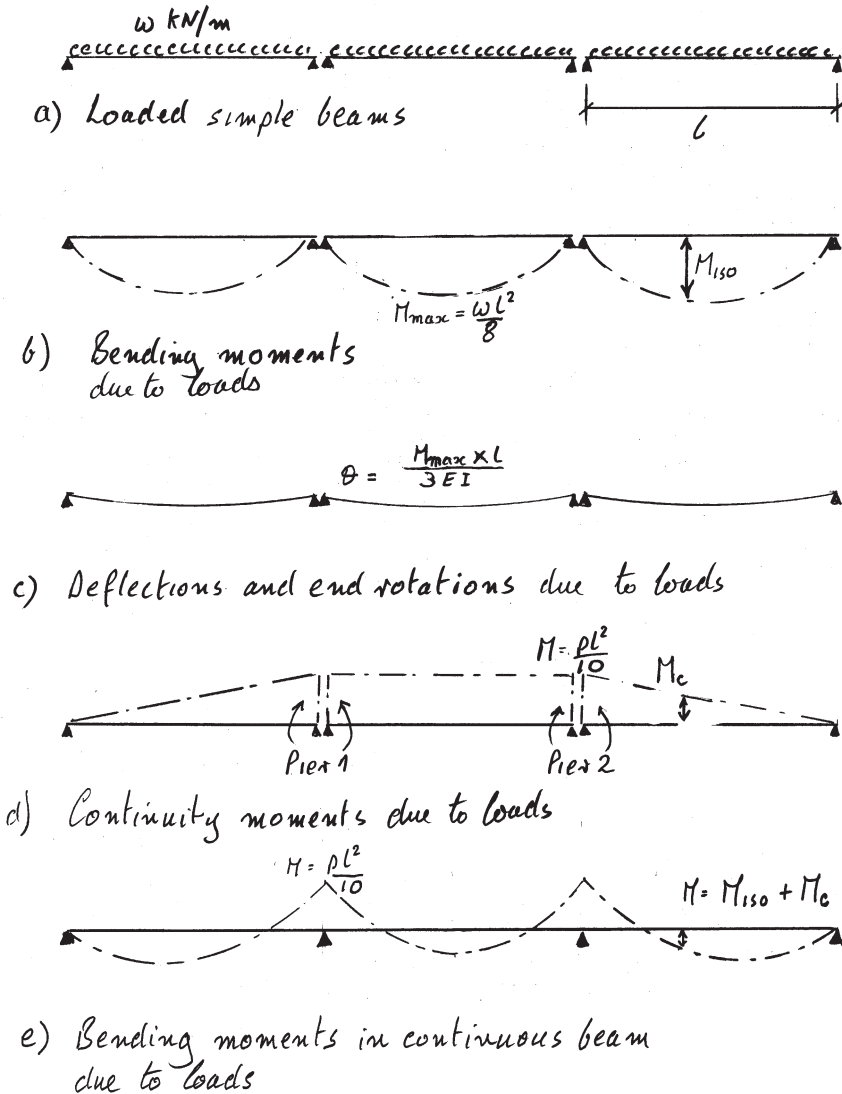 ω KN/m
a) Loaded simple beams
l
M iso
M max = ωl²/8
b) Bending moments
due to loads
θ = M max × l / 3EI
c) Deflections and end rotations due to loads
M = pl²/10
Mc
Pier 1
Pier 2
d) Continuity moments due to loads
M = pl²/10
M = M iso + Mc
e) Bending moments in continuous beam
due to loads